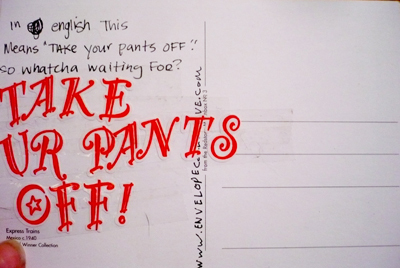 In english This
Means "TAKE your pants OFF."
So whatcha waiting FOR?
TAKE
UR PANTS
OFF!
Express Trains
Mexico c.1940
Winner Collection
from the Redstone